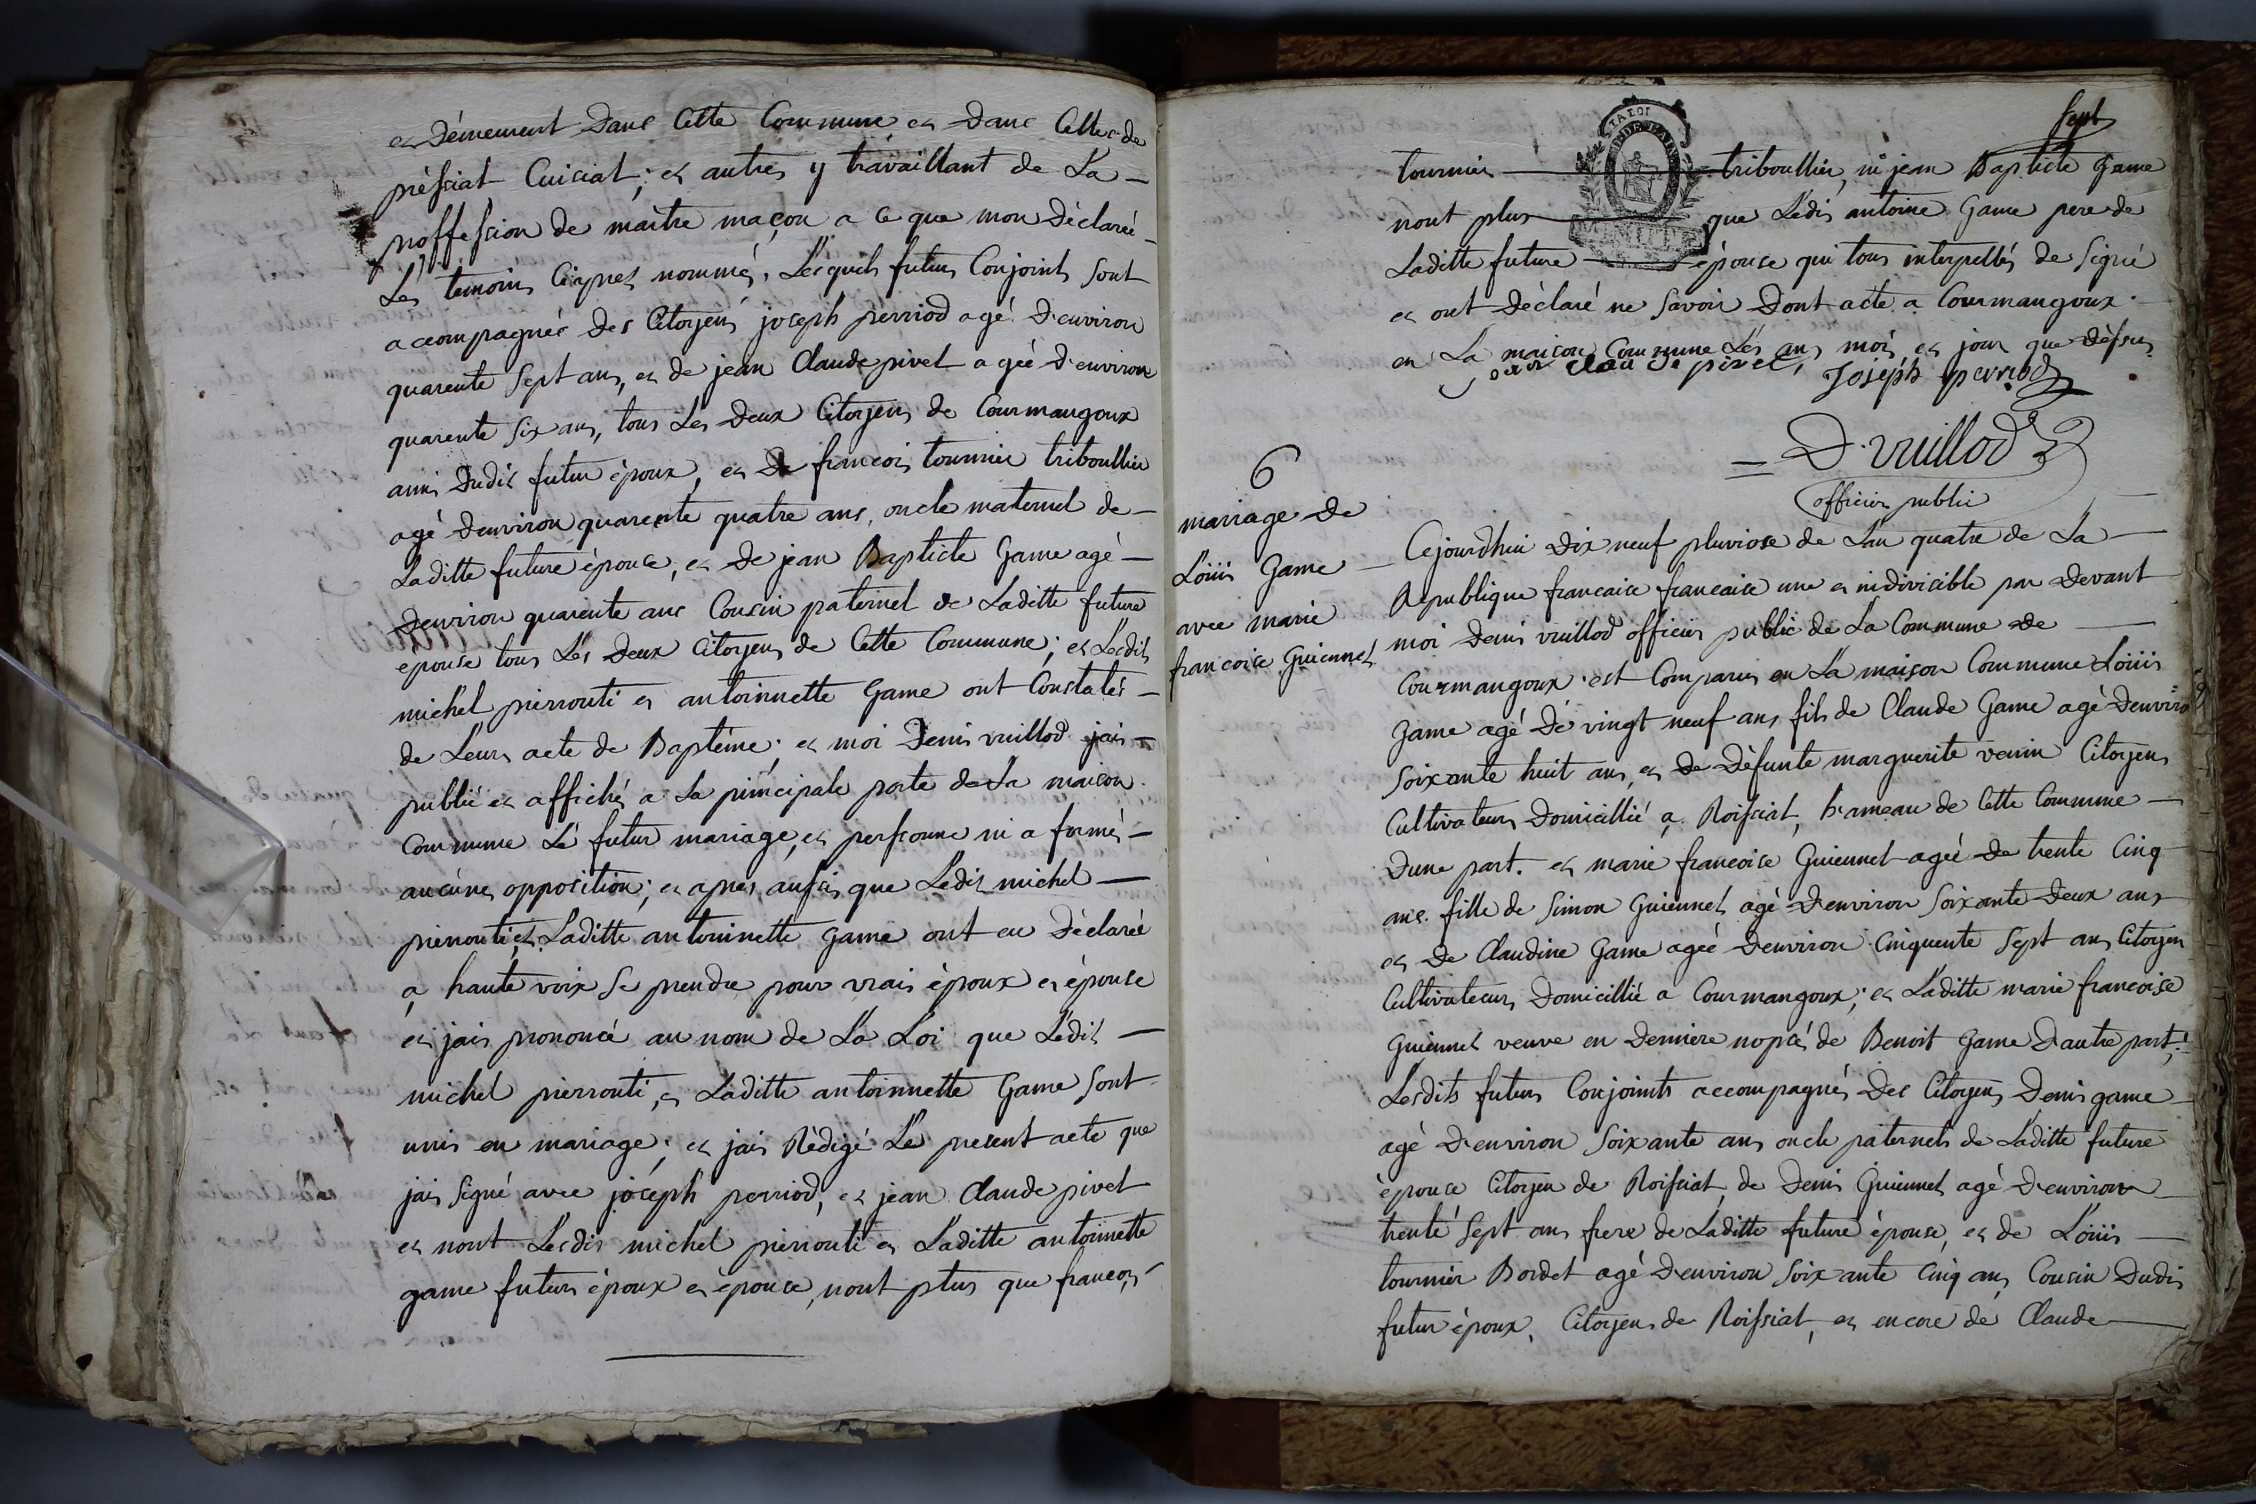 et Dérnement Dans Cette Commune et dans Celles de
préssiat Cuisiat; et autres y travaillant de La
proffession de maitre maçon a ce que mon Déclaré
Les temoins Ciapres nommés. Lesquels futurs Conjoints Sont
accompagnés des Citoyens joseph perriod agé d'environ
quarente Sept ans, et de jean Claude pivet agée d'environ
quarente Six ans, tous Les deux Citoyens de Courmangoux
amis Dudit futur époux, et De francois tournier triboullier
agé denviron quarente quatre ans, oncle maternel de
Laditte future épouse, et de jean Baptiste Game agé
denviron quarente ans Cousin paternel de Laditte future
epouse tous Les deux Citoyens de Cette Commune; et Lesdits
michel pierrouti et antoinnette Game ont Constatés
de Leurs acte de Baptéme; et moi Denis vuillod jais
publié et affiché a La principale porte de La maison
Commune Le futur mariage, et perssonne ni a formé
aucunes opposition; et apres aussis que Ledit michel
pierrouti et Laditte antoinnette game ont eu Déclarée
a haute voix Se prendre pour vrais époux et épouse
et jais prononcé au nom de La Loi que Ledit
michel pierrouti, et Laditte antoinnette Game Sont
unis en mariage; et jais Rédigé Le present acte que
jais Signé avec joseph perriod, et jean Claude pivet
et nont Lesdits michel pierrouti et Laditte antoinnette
game futurs époux et épouse, nont plus que francois
Sept
tournier triboullier, ni jean Baptiste Game
nont plus que Ledit antoine Game pere de
Laditte future épouse qui tous interpellés de Signé
et ont Déclaré ne Savoir Dont acte a Courmangoux
en La maison Commune Les ans mois et jour que dessus
jean claude pivet, Joseph perriod
D. vuillod
officier public
6
mariage de
Loüis Game
avec marie
francoise Guiennet
Cejourdhui dix neuf pluviose de Lan quatre de La
Republique francaise francaise une et indivisible par devant
moi Denis vuillod officier public de La Commune de
Courmangoux est Comparus en La maison Commune Loüis
Game agé de vingt neuf ans fils de Claude Game agé denviron
Soixante huit ans, et de Défunte marguerite venin Citoyens
Cultivateurs Domicillié a Roissiat, hameau de Cette Commune
Dune part. et marie francoise Guiennet agée de trente Cinq
ans. fille de Simon Guiennet agé denviron Soixante deux ans
et De Claudine Game agée denviron Cinquente Sept ans Citoyen
Cultivateurs Domicillié a Courmangoux; et Laditte marie francoise
Guiennet veuve en derniere nopcé de Benoit Game Dautre part;
Lesdits futurs Conjoints accompagnés des Citoyens Denis game
agé d'environ Soixante ans oncle paternels de Laditte future
épouse Citoyen de Roissiat, de Denis Guiennet agé d'environ
trente Sept ans frere de Laditte future épouse, et de Loüis
tournier Bordet agé denviron Soixante Cinq ans Cousin Dudit
futur époux, Citoyens de Roissiat, et encore de Claude